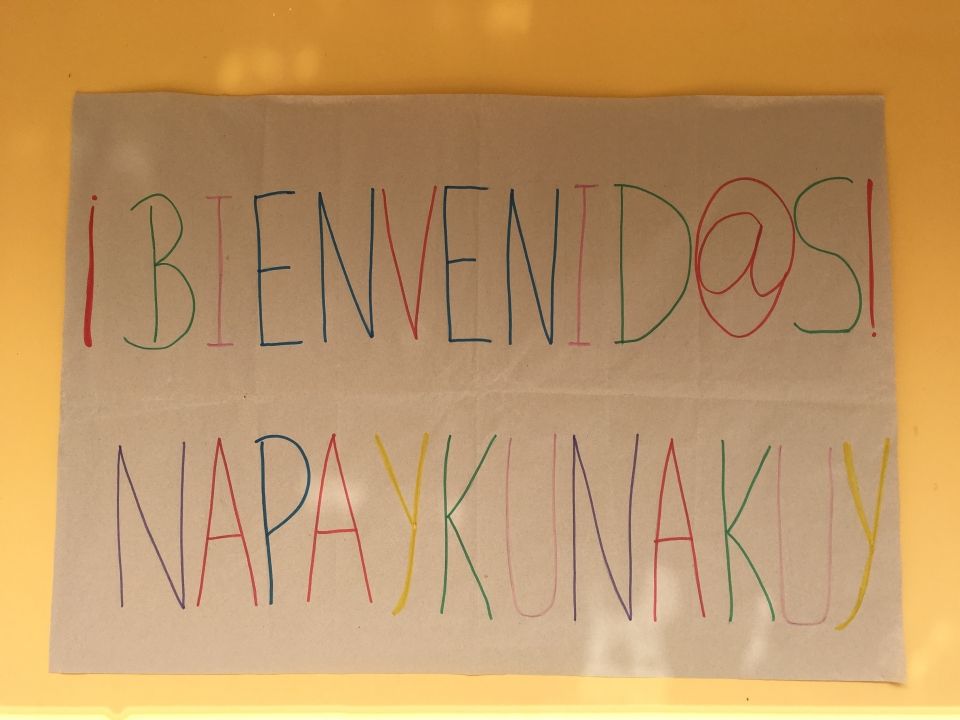 ¡BIENVENID@S!
NAPAYKUNAKUY